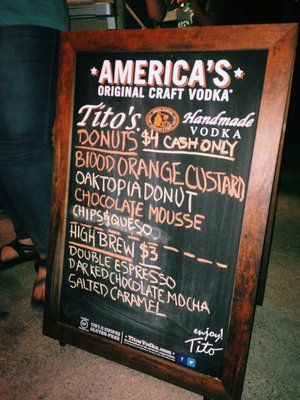 AMERICA'S
ORIGINAL CRAFT VODKA
Tito's Handmade
VODKA
DONUTS $4 CASH ONLY
BLOOD ORANGE CUSTARD
OAKTOPIA DONUT
CHOCOLATE MOUSSE
CHIPS & QUESO
HIGH BREW $3
DOUBLE ESPRESSO
DARK CHOCOLATE MOCHA
SALTED CARAMEL
enjoy!
Tito
GLUTEN-FREE
TitosVodka.com